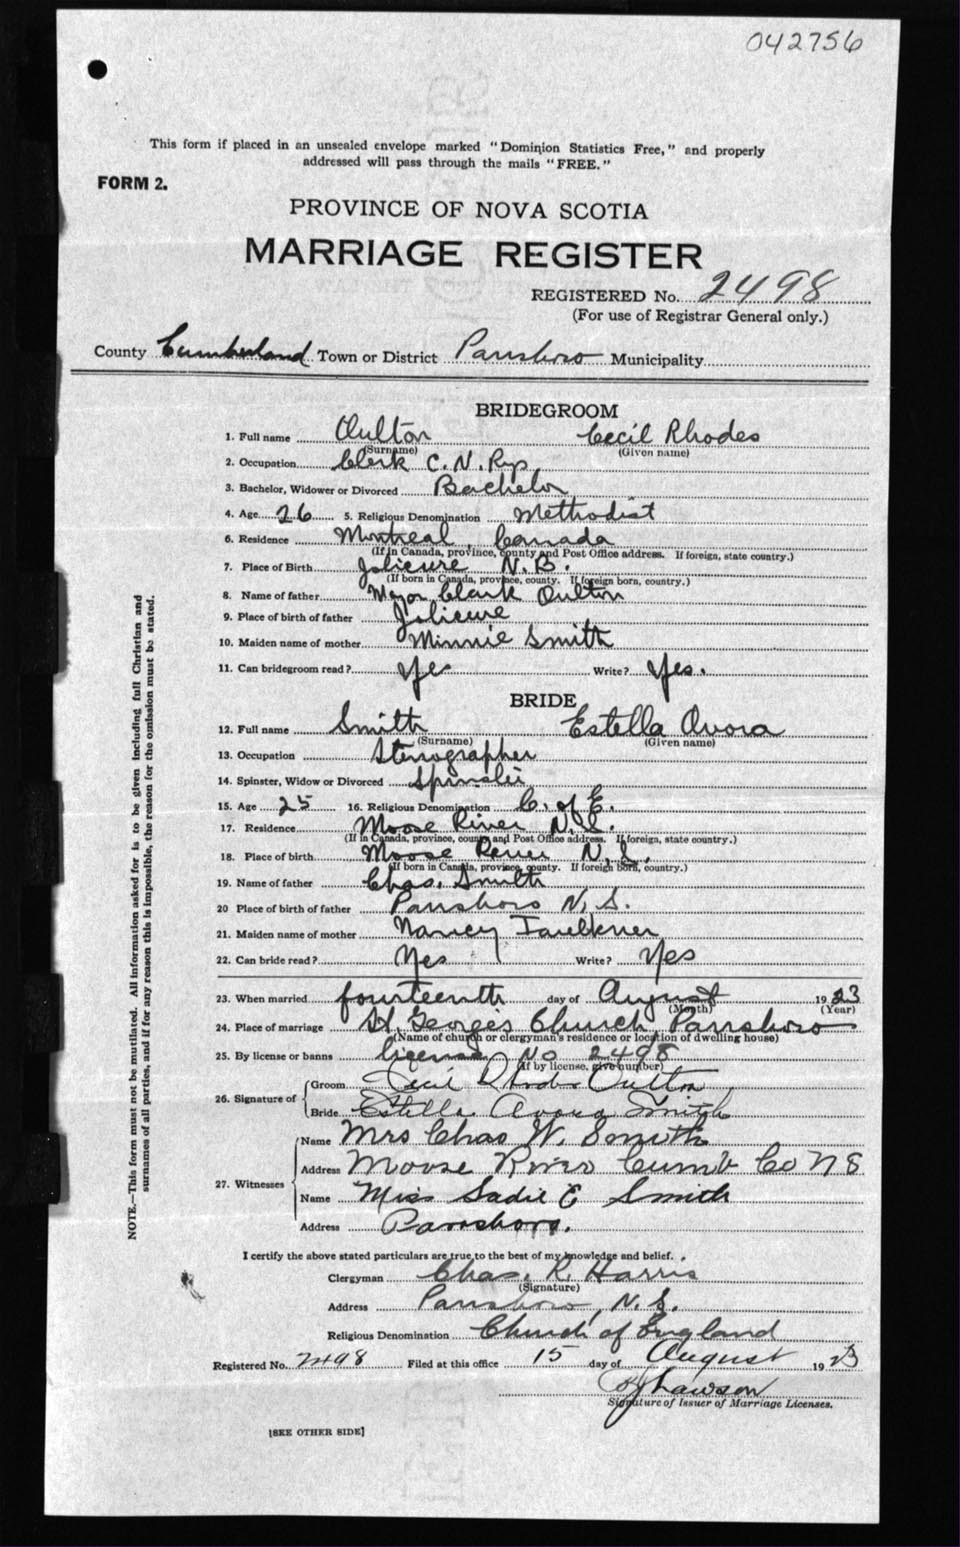 042756
This form if placed in an unsealed envelope marked "Dominion Statistics Free," and properly
addressed will pass through the mails "FREE."
FORM 2.
PROVINCE OF NOVA SCOTIA
MARRIAGE REGISTER
REGISTERED No. 2498
(For use of Registrar General only.)
County Cumberland Town or District Parrsboro Municipality
BRIDEGROOM
1. Full name Oulton Cecil Rhodes
(Surname) (Given name)
2. Occupation Clerk C. N. Rys
3. Bachelor, Widower or Divorced Bachelor
4. Age 26 5. Religious Denomination Methodist
6. Residence Montreal, Canada
(If in Canada, province, county and Post Office address. If foreign, state country.)
7. Place of Birth Jolicure N.B.
(If born in Canada, province, county. If foreign born, country.)
8. Name of father Major Clark Oulton
9. Place of birth of father Jolicure
10. Maiden name of mother Minnie Smith
11. Can bridegroom read? Yes Write? Yes.
BRIDE
12. Full name Smith Estella Avora
(Surname) (Given name)
13. Occupation Stenographer
14. Spinster, Widow or Divorced Spinster
15. Age 25 16. Religious Denomination C. of E.
17. Residence Moose River N.S.
(If in Canada, province, county and Post Office address. If foreign, state country.)
18. Place of birth Moose River N.S.
(If born in Canada, province, county. If foreign born, country.)
19. Name of father Chas. Smith
20 Place of birth of father Parrsboro N.S.
21. Maiden name of mother Nancy Faulkner
22. Can bride read? Yes Write? Yes
23. When married fourteenth day of August 1923
(Month) (Year)
24. Place of marriage St. George's Church, Parrsboro
(Name of church or clergyman's residence or location of dwelling house)
25. By license or banns license No 2498
(If by license, give number)
26. Signature of Groom Cecil Rhodes Oulton
Bride Estella Avora Smith
27. Witnesses Name Mrs Chas W. Smith
Address Moose River Cumb Co N S
Name Miss Sadie E Smith
Address Parrsboro.
I certify the above stated particulars are true to the best of my knowledge and belief.
Clergyman Chas. R. Harris
(Signature)
Address Parrsboro, N.S.
Religious Denomination Church of England
Registered No. 2498 Filed at this office 15 day of August 1923
Lawson
Signature of Issuer of Marriage Licenses.
[SEE OTHER SIDE]
NOTE.—This form must not be mutilated. All information asked for is to be given including full Christian and
surnames of all parties, and if for any reason this is impossible, the reason for the omission must be stated.